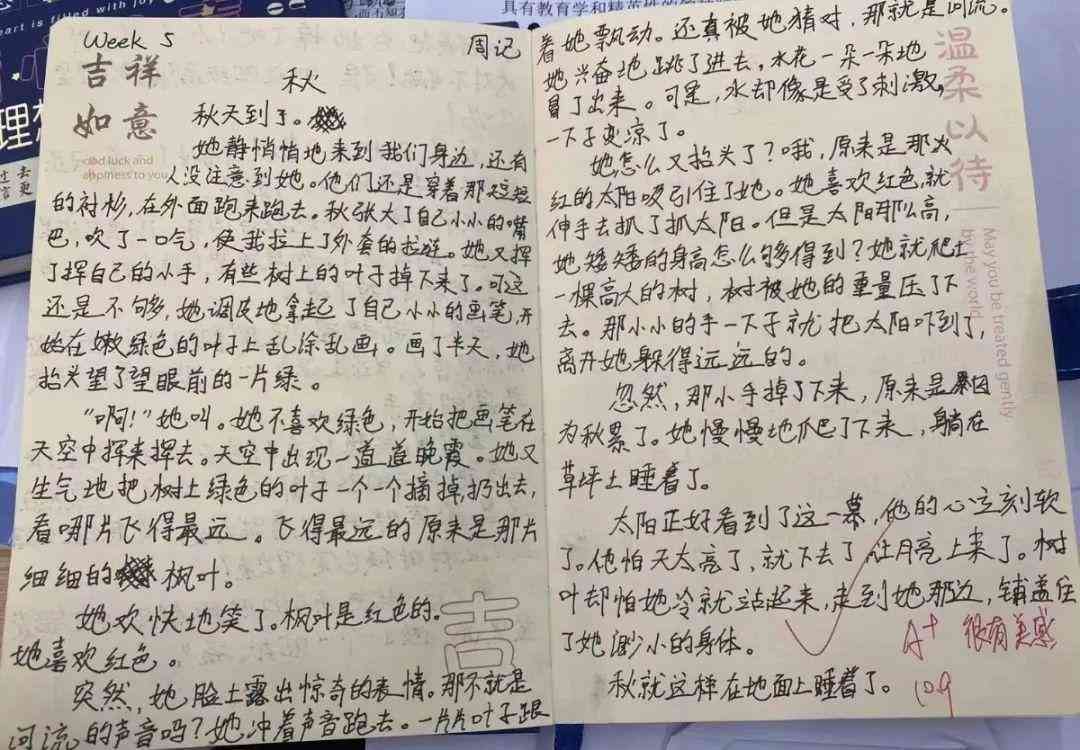 具有教育学和精英性的
Week 5
周记
吉祥
如意
秋
秋天到了。
她静悄悄地来到我们身边，还有
人没注意到她。他们还是穿着那短短
的衬衫，在外面跑来跑去。秋张大了自己小小的嘴
巴，吹了一口气，使我拉上了外套的拉链。她又挥
了挥自己的小手，有些树上的叶子掉下来了。可这
还是不够，她调皮地拿起了自己小小的画笔，开
始在嫩绿色的叶子上乱涂乱画。画了半天，她
抬头望了望眼前的一片绿。
“啊！”她叫。她不喜欢绿色，开始把画笔在
天空中挥来挥去。天空中出现一道道晚霞。她又
生气地把树上绿色的叶子一个一个摘掉扔出去，
看哪片飞得最远。飞得最远的原来是那片
细细的枫叶。
她欢快地笑了。枫叶是红色的。
她喜欢红色。
突然，她脸上露出惊奇的表情。那不就是
河流的声音吗？她冲着声音跑去。一片片叶子跟
吉
着她飘动。还真被她猜对，那就是河流。
她兴奋地跳了进去，水花一朵一朵地
冒了出来。可是，水却像是受了刺激，
一下子变凉了。
她怎么又抬头了？哦，原来是那火
红的太阳吸引住了她。她喜欢红色，就
伸手去抓了抓太阳。但是太阳那么高，
她矮矮的身高怎么够得到？她就爬上
一棵高大的树，树被她的重量压了下
去。那小小的手一下子就把太阳吓到了，
离开她躲得远远的。
忽然，那小手掉了下来，原来是因
为秋累了。她慢慢地爬了下来，躺在
草坪上睡着了。
太阳正好看到了这一幕，他的心立刻软
了。他怕天太亮了，就下去了让月亮上来了。树
叶却怕她冷就站起来，走到她那边，铺盖住
了她渺小的身体。
秋就这样在地面上睡着了。
温柔以待
May you be treated gently
by the world
A+ 很有美感
10.9